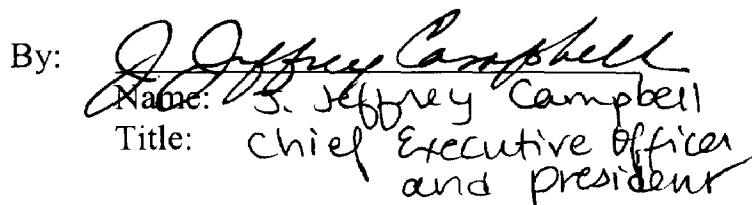 By: J. Jeffrey Campbell
Name: J. Jeffrey Campbell
Title: Chief Executive Officer
and president